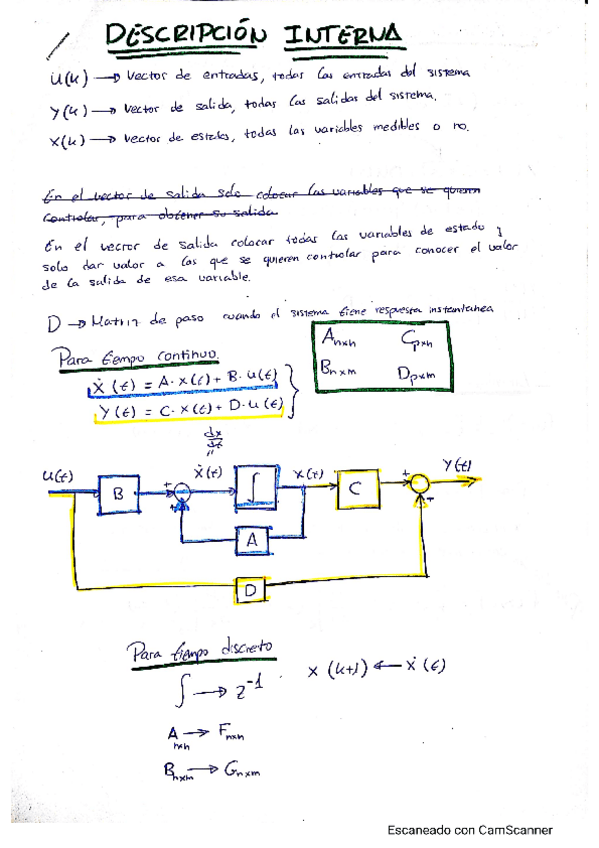 DESCRIPCIÓN INTERNA
U(k) → Vector de entradas, todas las entradas del sistema
Y(k) → Vector de salida, todas las salidas del sistema.
X(k) → Vector de estados, todas las variables medibles o no.
En el vector de salida solo colocar las variables que se quieren
controlar, para obtener su salida
En el vector de salida colocar todas las variables de estado y
solo dar valor a las que se quieren controlar para conocer el valor
de la salida de esa variable.
D → Matriz de paso cuando el sistema tiene respuesta instantanea
A nxn C pxn
B nxm D pxm
Para tiempo continuo.
Ẋ(t) = A·X(t) + B·u(t)
Y(t) = C·X(t) + D·u(t)
dx/dt
"
U(t) B + + Ẋ(t) ∫ X(t) C + + Y(t)
A
D
Para tiempo discreto
∫ → z⁻¹ x(k+1) ← ẋ(t)
A nxn → F nxn
B nxm → G nxm
Escaneado con CamScanner